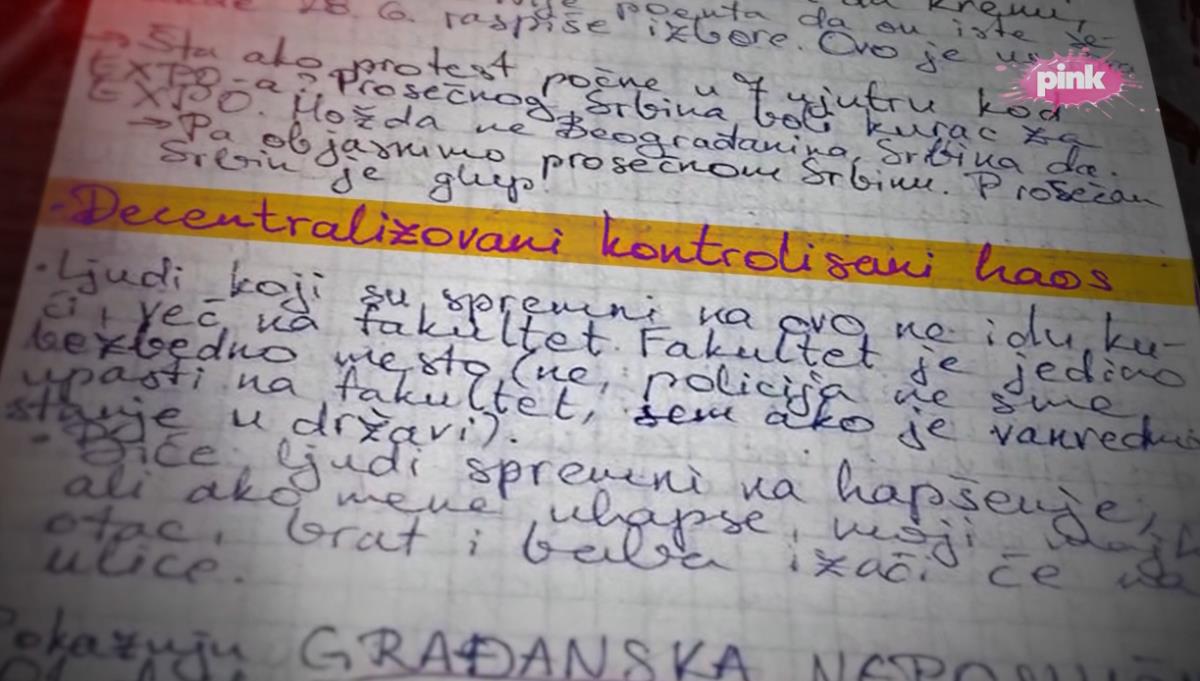 28. 6. raspiše izbore. Ovo je
poenta da on iste
→ Šta ako protest počne u 7 ujutru kod
EXPO-a? Prosečnog Srbina boli kurac za
EXPO. Možda ne Beograđanina, Srbina da.
→ Pa objasnimo prosečnom Srbinu. Prosečan
Srbin je glup.
pink
• Decentralizovani kontrolisani haos
• Ljudi koji su spremni na ovo ne idu ku-
ći, već na fakultet. Fakultet je jedino
bezbedno mesto (ne, policija ne sme
upasti na fakultet, sem ako je vanredno
stanje u državi).
• Biće ljudi spremni na hapšenje,
ali ako mene uhapse, moji
otac, brat i baba izaći će na
ulice.
Pokazuju GRAĐANSKA